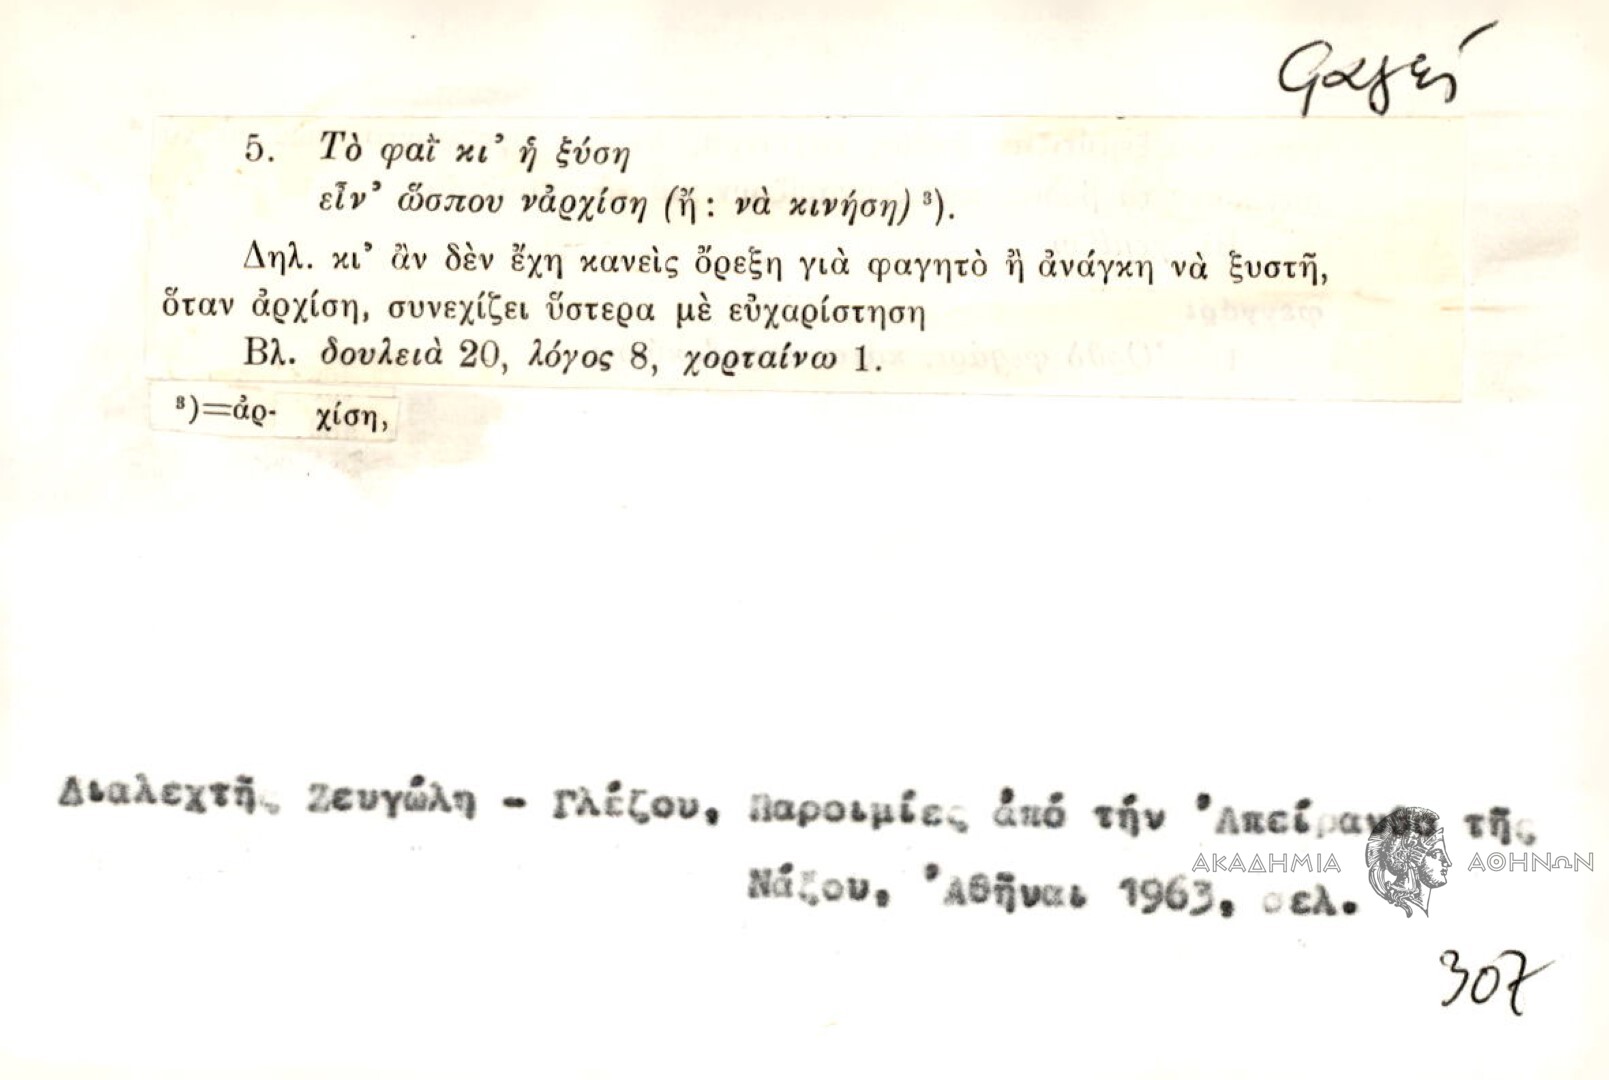 φαγεί
5. Τὸ φαῒ κι’ ἡ ξύση
εἶν’ ὥσπου νἀρχίση (ἤ: νὰ κινήση) ³).
Δηλ. κι’ ἂν δὲν ἔχη κανεὶς ὄρεξη γιὰ φαγητὸ ἢ ἀνάγκη νὰ ξυστῆ,
ὅταν ἀρχίση, συνεχίζει ὕστερα μὲ εὐχαρίστηση
Βλ. δουλειὰ 20, λόγος 8, χορταίνω 1.
³)=ἀρ- χίση,
Διαλεχτῆς Ζευγώλη - Γλέζου, Παροιμίες ἀπό τήν Ἀπείρανθο τῆς
Νάξου, Ἀθῆναι 1963, σελ.
ΑΚΑΔΗΜΙΑ ΑΘΗΝΩΝ
307